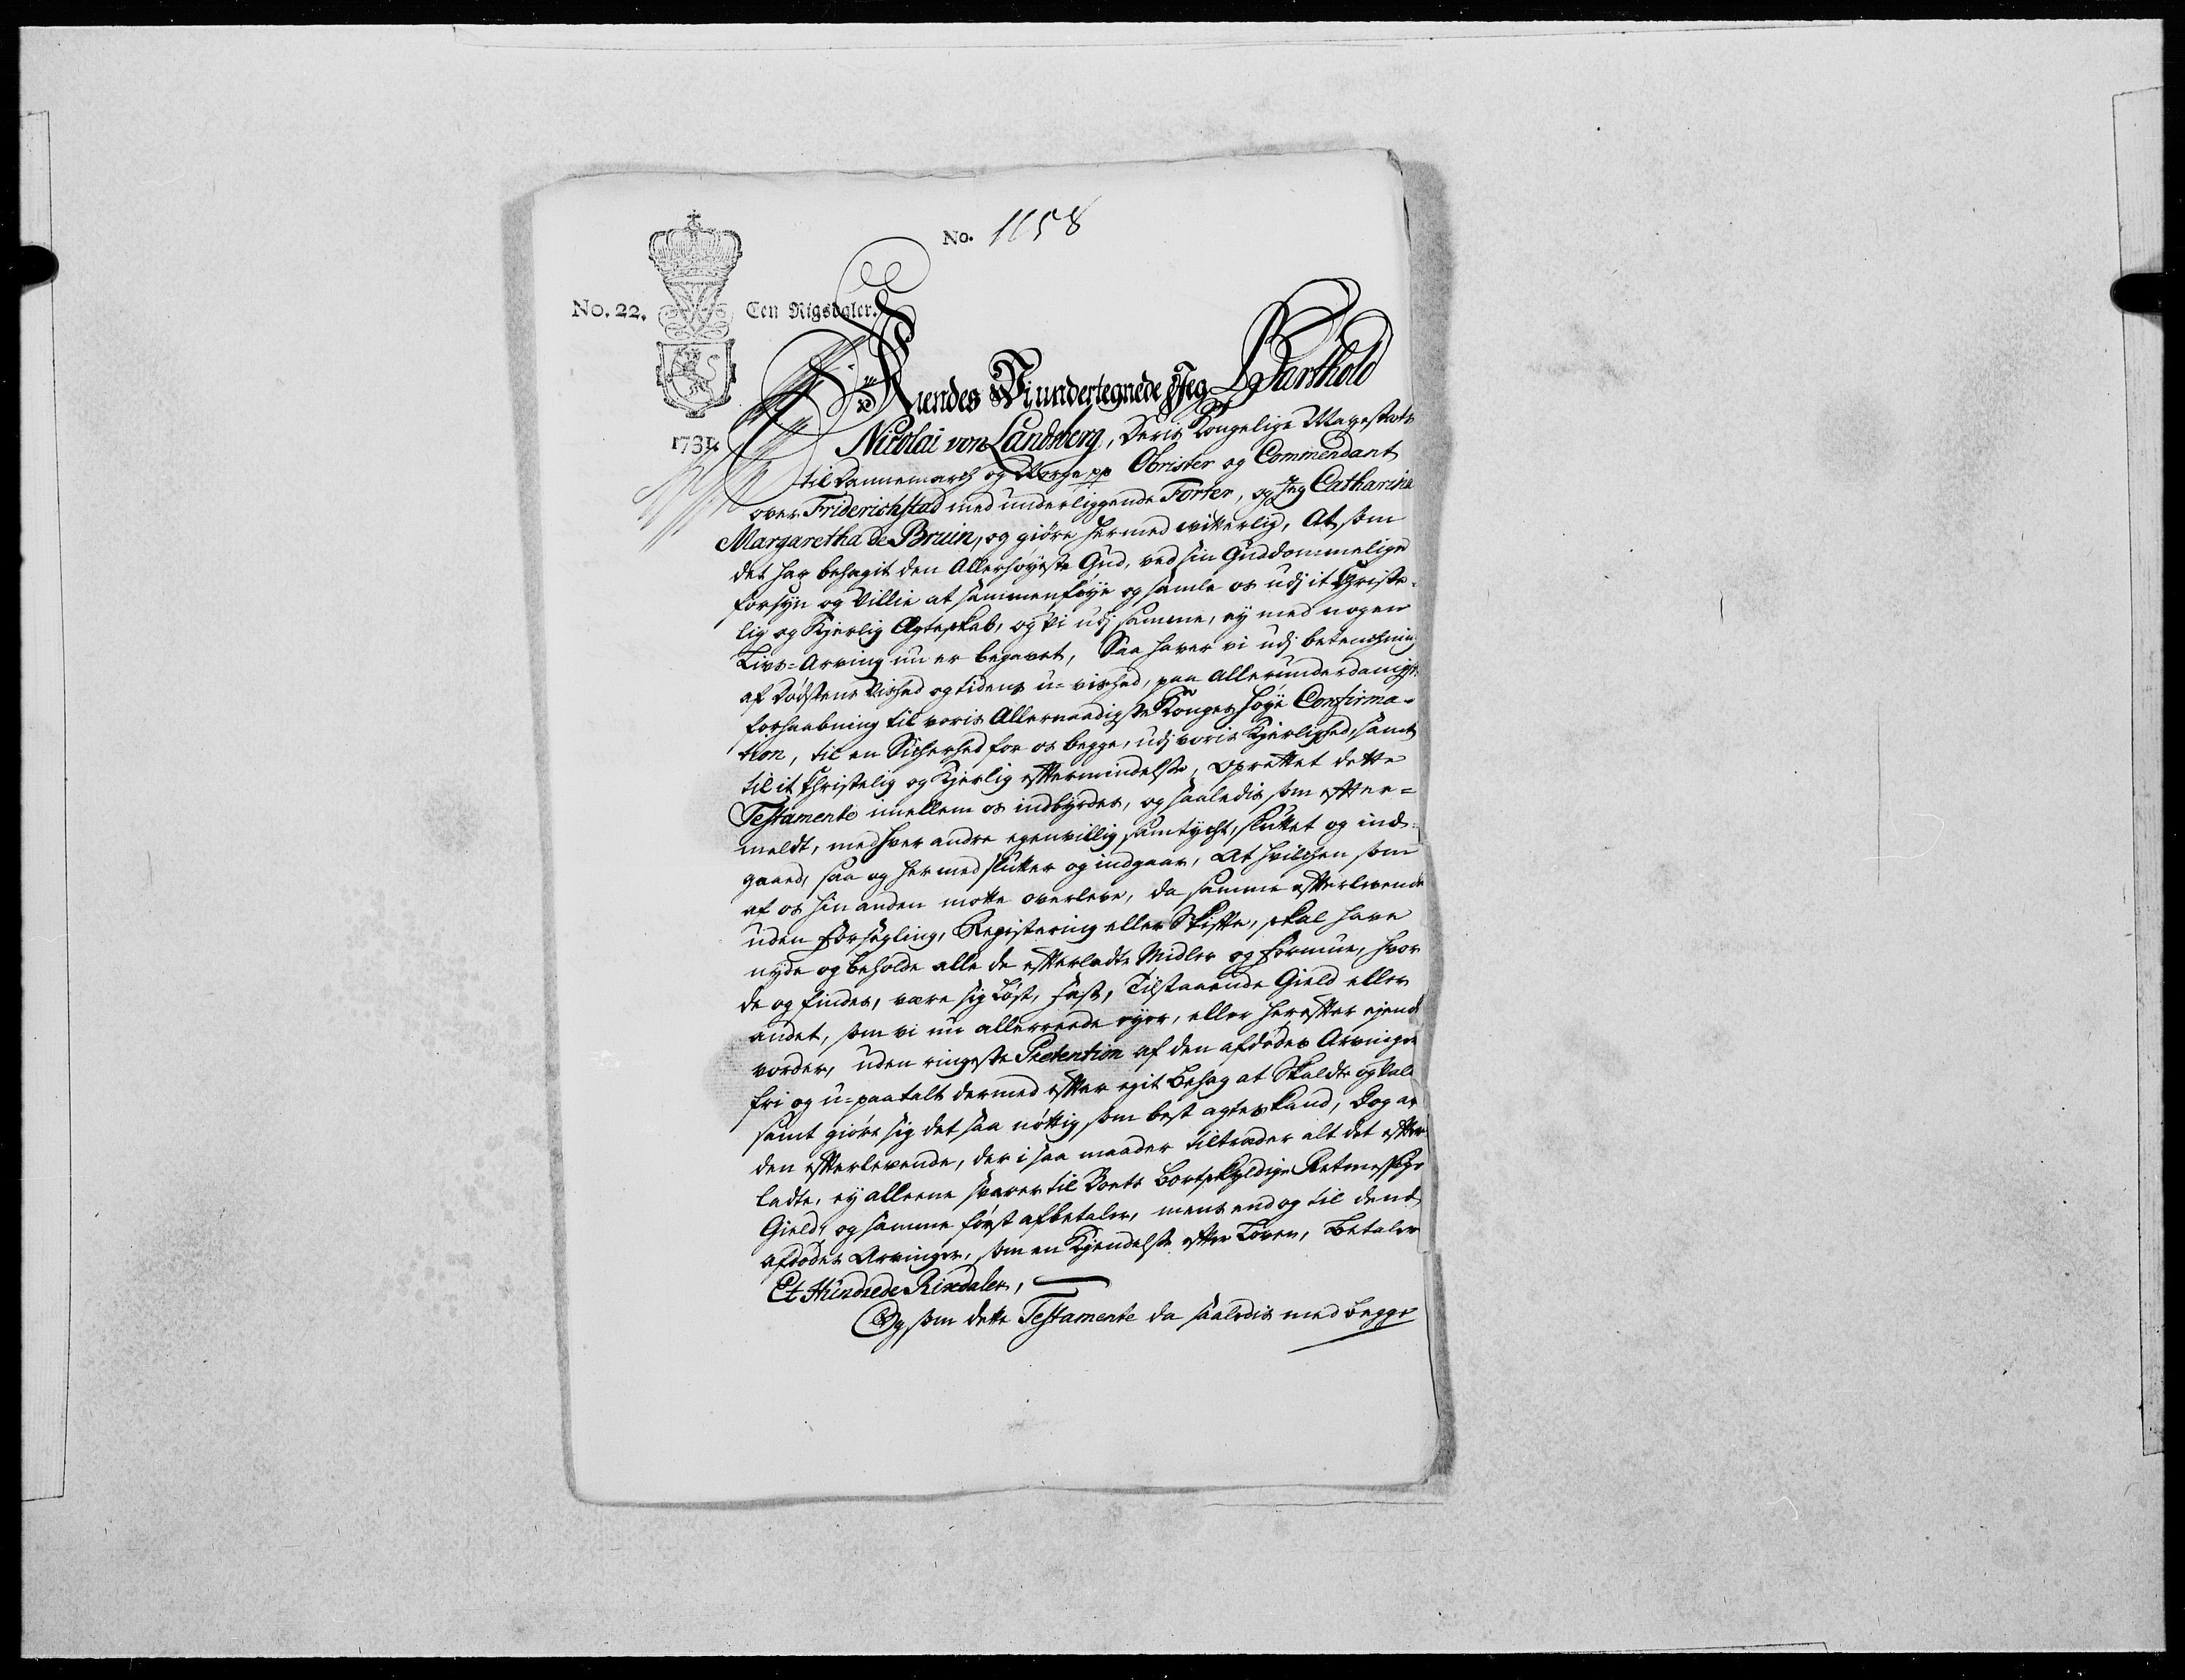 No. 1158
No. 22. Een Rigsdaler.
1731.
Kiendes Vi undertegnede Jeg Barthold
Nicolai von Landsberg, Deris Kongelige Mayestæts
til Dannemarch og Norge pp Obrister og Commendant
over Friderichstad med underliggende Forter, og Jeg Catharina
Margaretha de Bruin, og giöre hermed witterlig, At som
det har behagit den Allerhöyeste Gud, ved sin Guddommelige
forsyn og Villie at sammenföye og samle os udj it Christe-
lig og Kjerlig Ægteskab, og Vi udj samme, ey med nogen
Livs-Arving nu er begavet, Saa haver vi udj betenchning
af Dödsens Vished og tidens u-vished, paa allerunderdanigst
forhaabning til voris Allernaadigste Konges höye Confirma-
tion, til en Sicherhed for os begge, udj voris Kjerlighed, samt
til it Christelig og Kjerlig effterminde1se, oprettet dette
Testamente imellem os indbyrdes, og saaledis som effter-
meldt, med hver andre egenvillig samtycht, sluttet og ind-
gaaed, saa og hermed slutter og indgaar, At hvilchen som
af os hin anden motte overleve, da samme effterlevende
uden forsegling, Registering eller Skiffte, skal have
nyde og beholde alle de effterladte Midler og formue, hvor
de og findes, være sig Löst, fast, Tilstaaende Gield eller
andet, som vi nu allerreede eyer, eller hereffter ejende
vorder, uden ringeste Prætention af den afdödes Arvinger
fri og u-paatalt dermed effter egit behag at Skalte og Valte
samt giöre sig det saa nöttig som best agtes kand, Dog at
den effterlevende, der i saa maader tiltræder alt det effter
ladte, ey alleene svarer til Boets bortskyldige Retmessige
Gield, og samme först afbetaler, mens end og til dend
afdödes Arvinger, som en Kjendelse effter Loven, betaler
Et Hundrede Rixdaler,
Og som dette Testamente da saaledis med begge